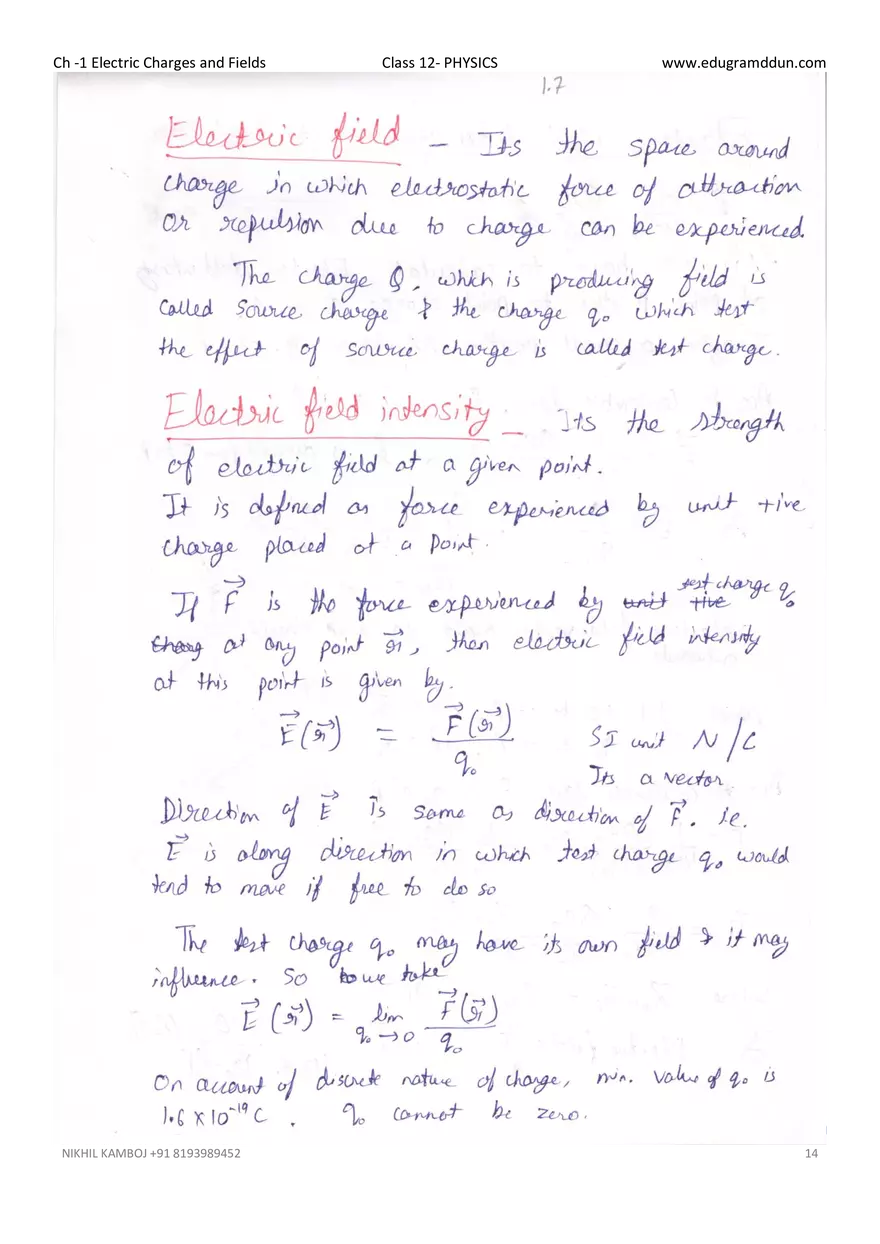 Ch -1 Electric Charges and Fields Class 12- PHYSICS www.edugramddun.com
1.7
Electric field – Its the space around
charge in which electrostatic force of attraction
or repulsion due to charge can be experienced.
The charge Q, which is producing field is
called source charge & the charge q₀ which test
the effect of source charge is called test charge.
Electric field intensity – Its the strength
of electric field at a given point.
It is defined as force experienced by unit +ive
charge placed at a point.
If F⃗ is the force experienced by unit +ive test charge q₀
charg at any point r⃗, then electric field intensity
at this point is given by.
E⃗(r⃗) = F⃗(r⃗)/q₀ SI unit N/C
Its a vector
Direction of E⃗ is same as direction of F⃗. i.e.
E⃗ is along direction in which test charge q₀ would
tend to move if free to do so
The test charge q₀ may have its own field & it may
influence. So we take
E⃗(r⃗) = lim q₀→0 F⃗(r⃗)/q₀
On account of discrete nature of charge, min. value of q₀ is
1.6 x 10⁻¹⁹ C. q₀ cannot be zero.
NIKHIL KAMBOJ +91 8193989452 14